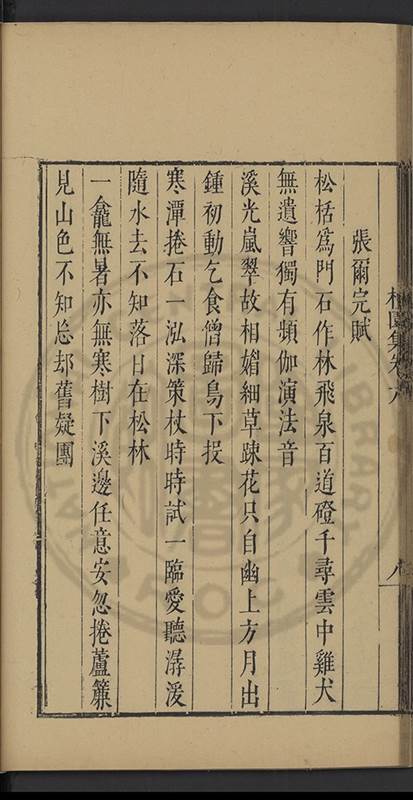 張爾完賦
松栝為門石作林飛泉百道磴千尋雲中雞犬
無遺響獨有頻伽演法音
溪光嵐翠故相媚細草疎花只自幽上方月出
鍾初動乞食僧歸鳥下投
寒潭捲石一泓深策杖時時試一臨愛聽潺湲
隨水去不知落日在松林
一龕無暑亦無寒樹下溪邊任意安忽捲蘆簾
見山色不知忘却舊疑團